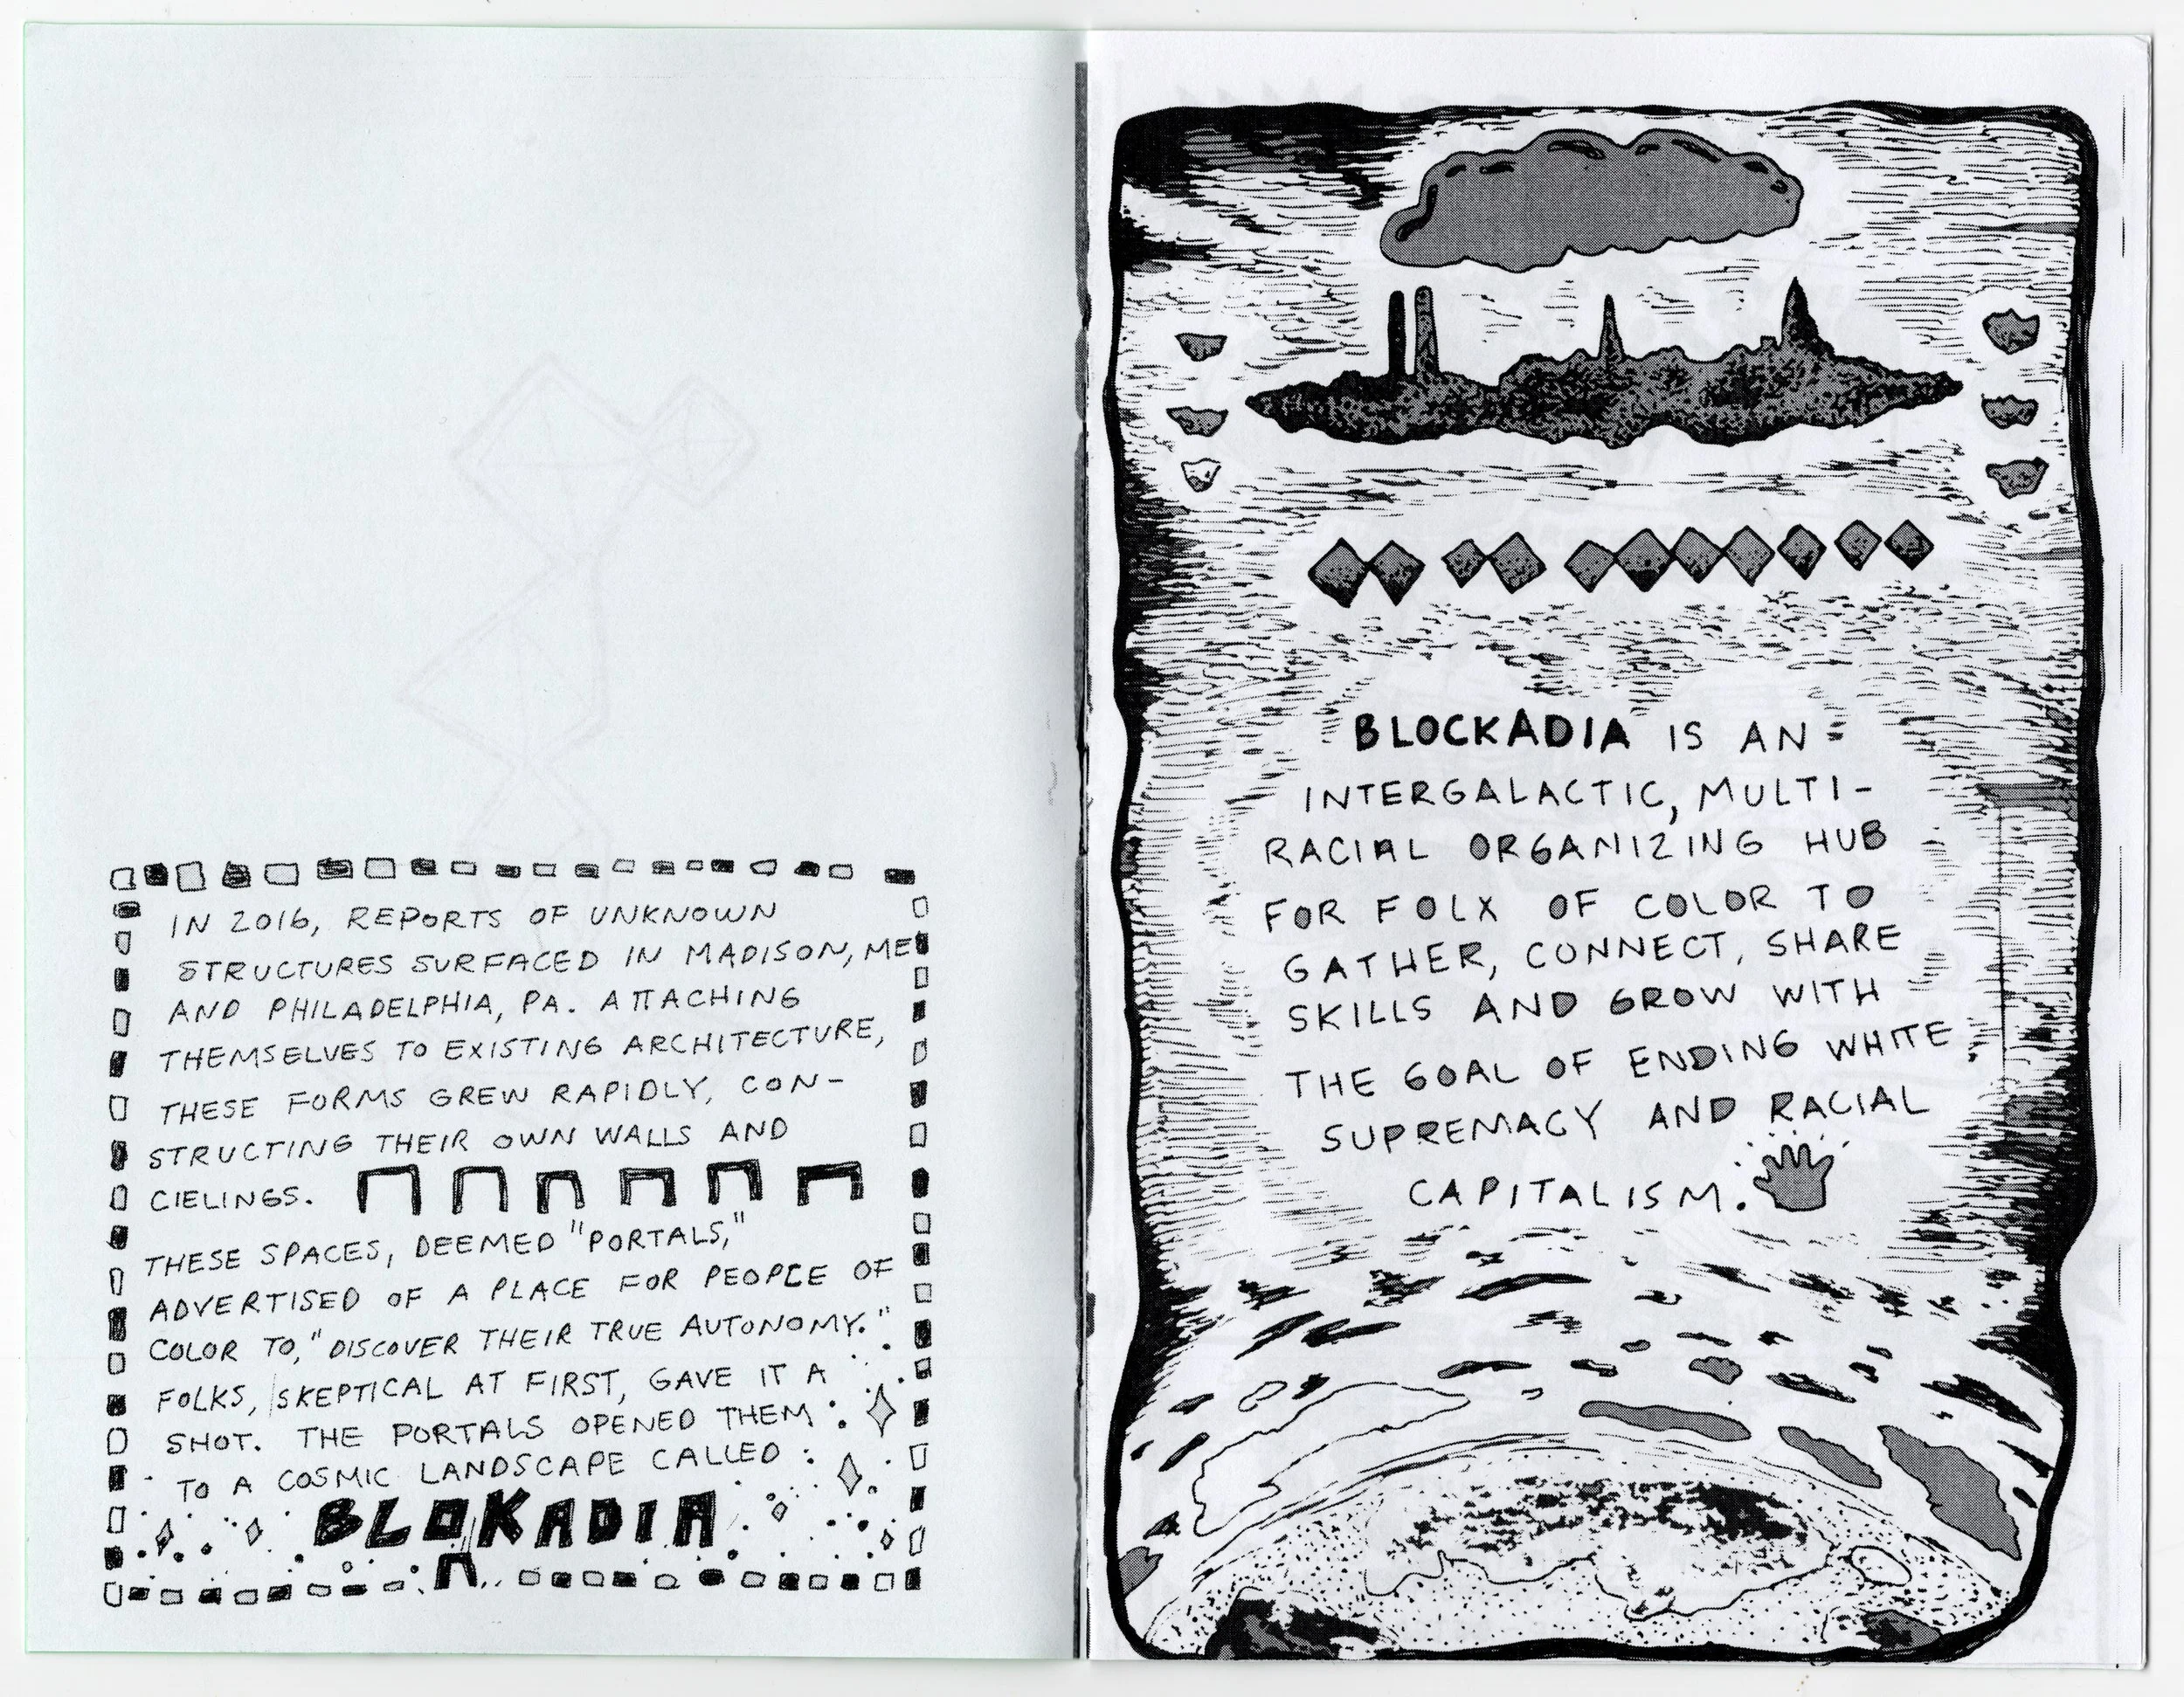 IN 2016, REPORTS OF UNKNOWN
STRUCTURES SURFACED IN MADISON, ME
AND PHILADELPHIA, PA. ATTACHING
THEMSELVES TO EXISTING ARCHITECTURE,
THESE FORMS GREW RAPIDLY, CON-
STRUCTING THEIR OWN WALLS AND
CIELINGS.
THESE SPACES, DEEMED "PORTALS,"
ADVERTISED OF A PLACE FOR PEOPLE OF
COLOR TO, "DISCOVER THEIR TRUE AUTONOMY."
FOLKS, SKEPTICAL AT FIRST, GAVE IT A
SHOT. THE PORTALS OPENED THEM
TO A COSMIC LANDSCAPE CALLED
BLOKADIA
BLOCKADIA IS AN
INTERGALACTIC, MULTI-
RACIAL ORGANIZING HUB
FOR FOLX OF COLOR TO
GATHER, CONNECT, SHARE
SKILLS AND GROW WITH
THE GOAL OF ENDING WHITE
SUPREMACY AND RACIAL
CAPITALISM.